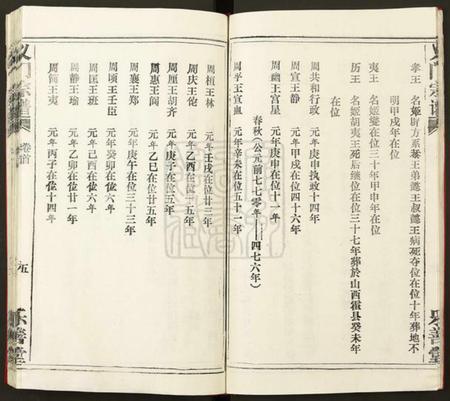 孝王　名姬昉方系懿王弟懿王叔懿王病死夺位在位十年葬地不
明甲戌年在位
夷王　名姬燮在位三十年甲申年在位
历王　名姬胡夷王死后继位在位三十七年葬於山西霍县癸未年
在位
周共和行政　元年庚申执政十四年
周宣王静　元年甲戌在位四十六年
周幽王宫星　元年庚申在位十一年
春秋(公元前七七零年——四七六年)
周平王宜臼　元年辛未在位五十一年
周桓王林　元年壬戌在位廿三年
周庆王佗　元年乙酉在位十五年
周厘王胡齐　元年庚子在位五年
周惠王阆　元年乙巳在位廿五年
周襄王郑　元年庚午在位三十三年
周顷王王臣　元年癸卯在位六年
周匡王班　元年己酉在位六年
周静王瑜　元年乙卯在位廿一年
周简王夷　元年丙子在位十四年
宗谱
卷首
乐善堂
宗谱
乐善堂